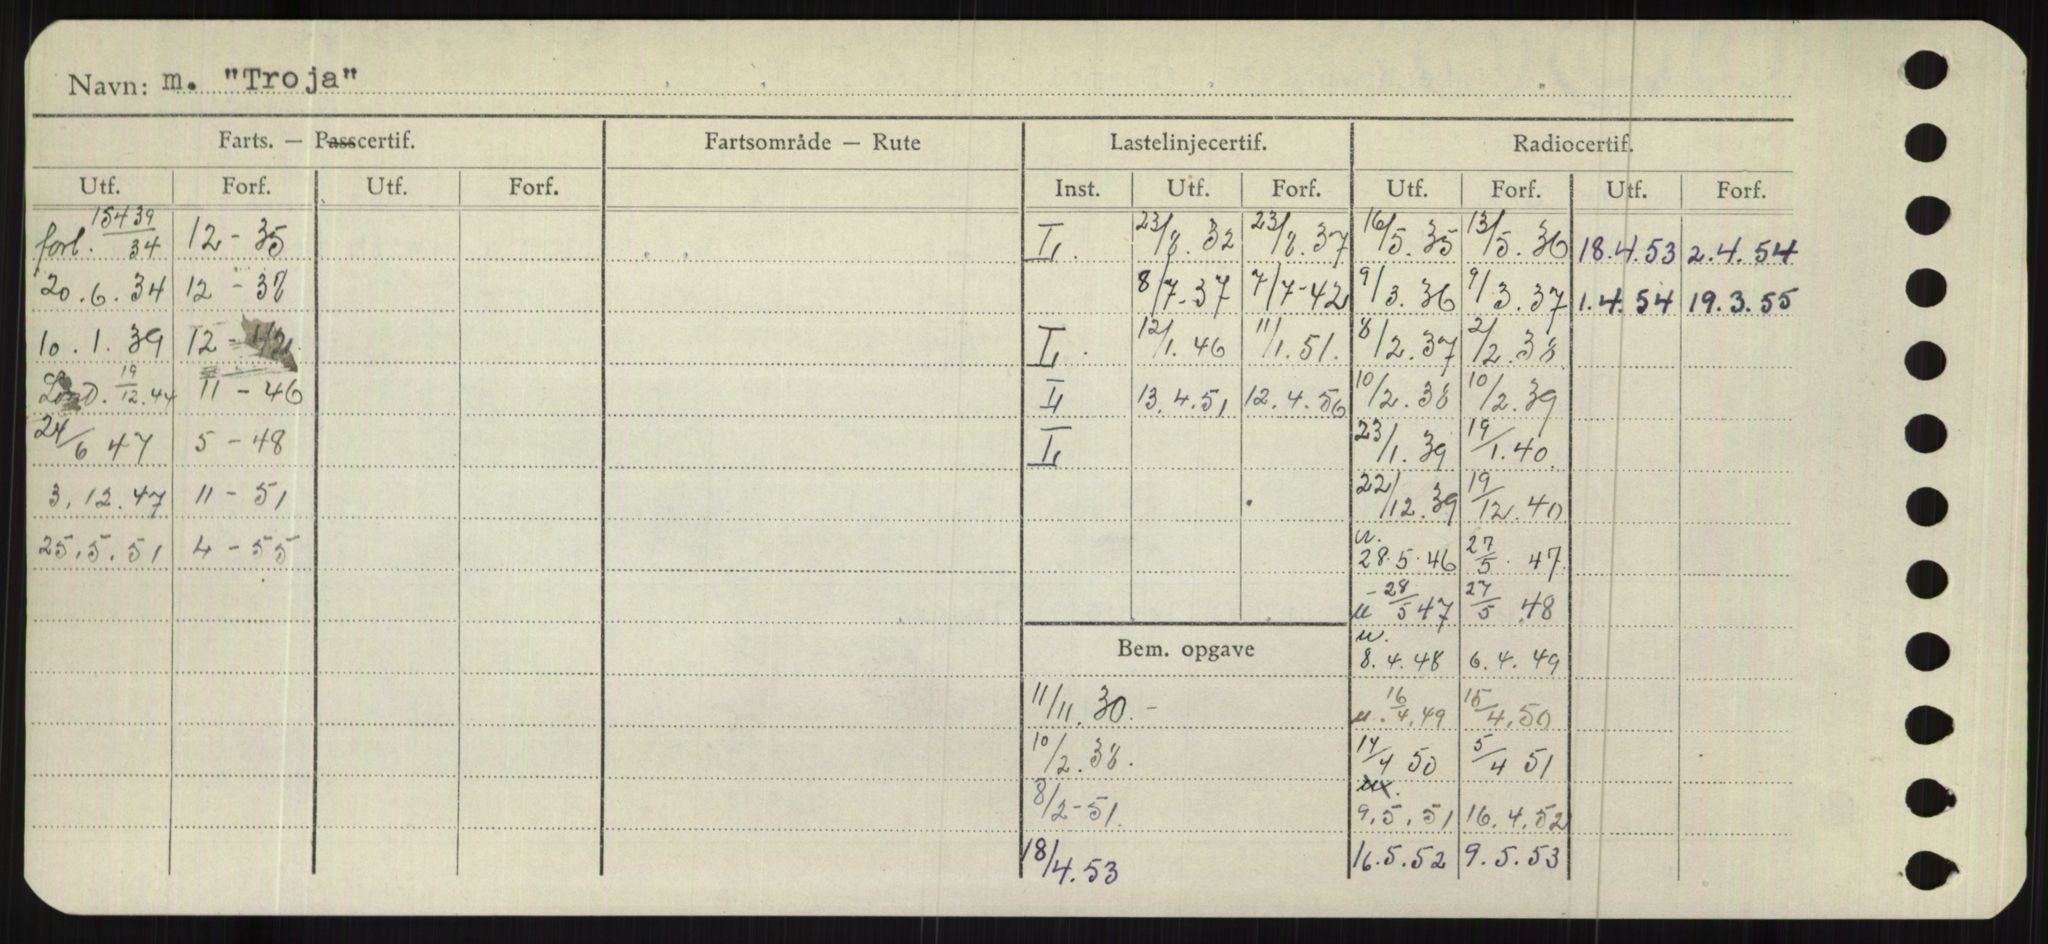 Navn: m. "Troja"
Farts. — Passcertif. Fartsområde — Rute Lastelinjecertif. Radiocertif.
Utf. Forf. Utf. Forf. Inst. Utf. Forf. Utf. Forf. Utf. Forf.
forl. 15439/34 12 - 35 L. 23/8. 32 23/8. 37 16/5. 35 13/5. 36 18.4.53 2.4.54
20.6.34 12 - 38 8/7-37 7/7-42 9/3. 36 9/3. 37 1.4.54 19.3.55
10.1.39 12 - 42 L. 12/1. 46 11/1. 51. 8/2. 37 2/2. 38
19/12.44 11 - 46 L 13.4.51 12.4.56 10/2. 38 10/2. 39
24/6 47 5 - 48 L 23/1. 39 19/1. 40
3.12.47 11 - 51 22/12. 39 19/12. 40
25.5.51 4 - 55 u. 28.5.46 27/5. 47
u - 28/5 47 27/5 48
Bem. opgave u. 8.4.48 6.4.49
11/11. 30. - u. 16/4.49 15/4.50
10/2. 38. 14/4 50 5/4 51
8/2-51. 9.5.51 16.4.52
18/4.53 16.5.52 9.5.53